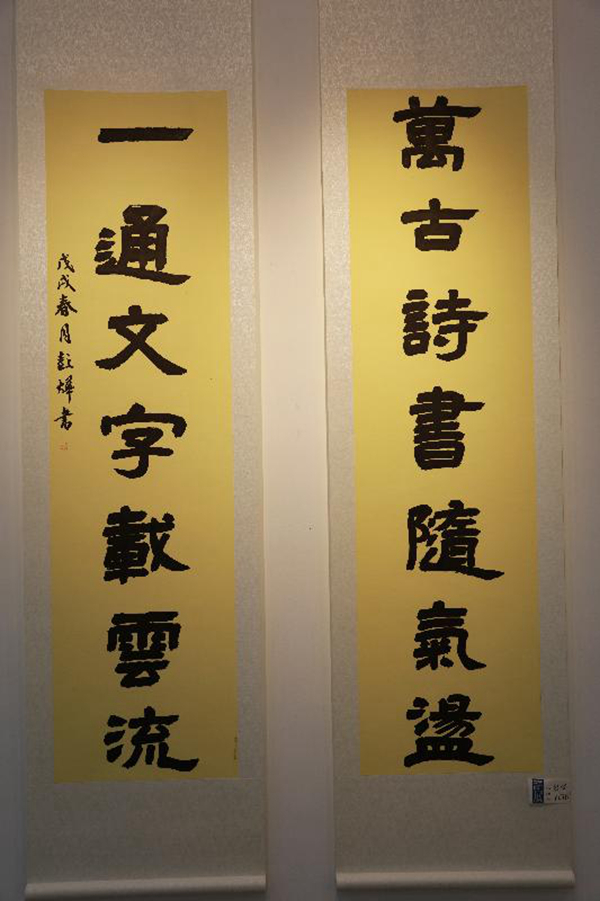 萬古詩書隨氣盪
一通文字載雲流
戊戌春月彭燁書